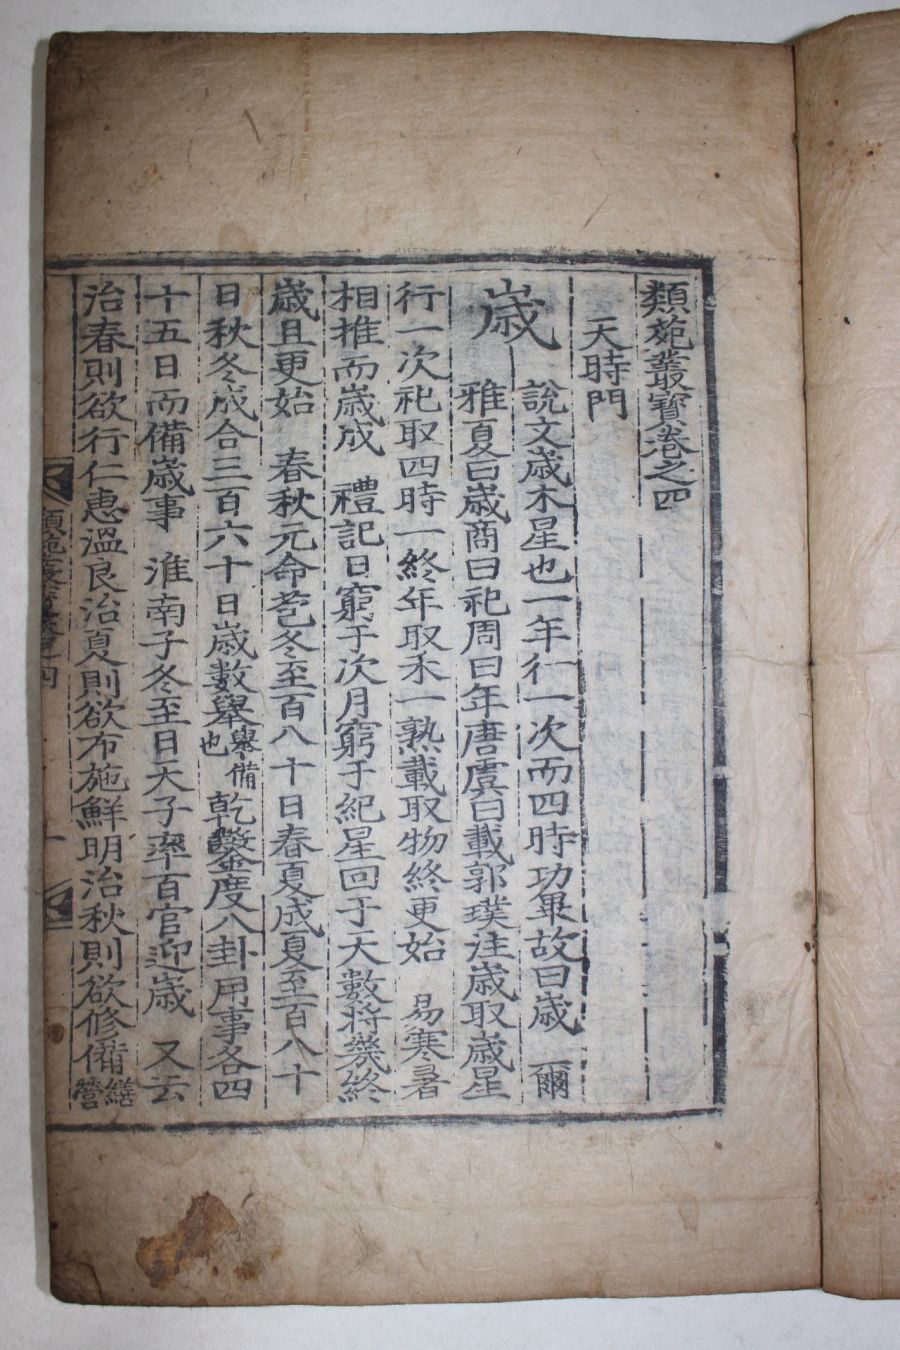 類苑叢寶卷之四
天時門
歲
說文歲木星也一年行一次而四時功畢故曰歲 爾
雅夏曰歲商曰祀周曰年唐虞曰載郭璞注歲取歲星
行一次祀取四時一終年取禾一熟載取物終更始 易寒暑
相推而歲成 禮記日窮于次月窮于紀星回于天數將幾終
歲且更始 春秋元命苞冬至百八十日春夏成夏至百八十
日秋冬成合三百六十日歲數舉舉備也乾鑿度八卦用事各四
十五日而備歲事 淮南子冬至日天子率百官迎歲 又云
治春則欲行仁惠溫良治夏則欲布施鮮明治秋則欲修備繕營
類苑叢寶卷四
一